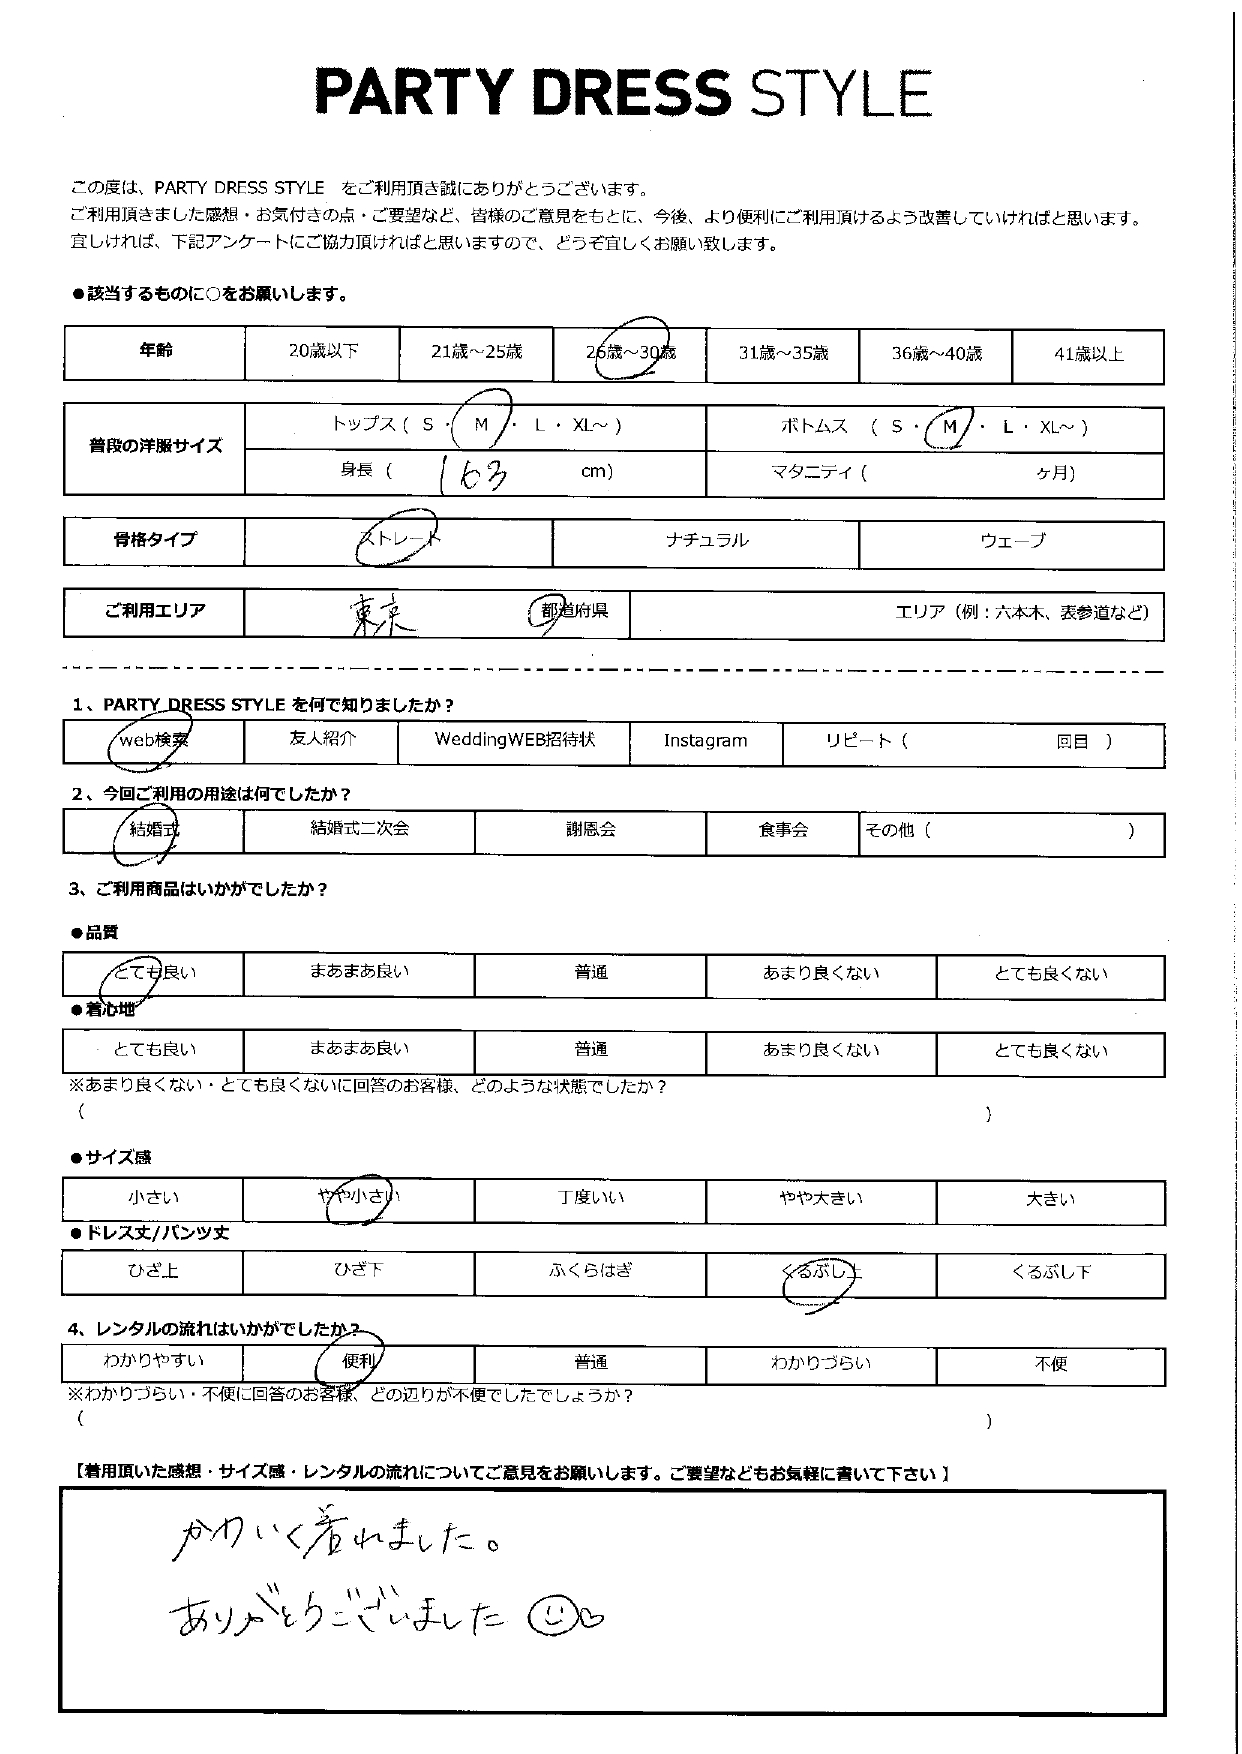 PARTY DRESS STYLE
この度は、PARTY DRESS STYLE をご利用頂き誠にありがとうございます。
ご利用頂きました感想・お気付きの点・ご要望など、皆様のご意見をもとに、今後、より便利にご利用頂けるよう改善していければと思います。
宜しければ、下記アンケートにご協力頂ければと思いますので、どうぞ宜しくお願い致します。
●該当するものに○をお願いします。
年齢 20歳以下 21歳～25歳 26歳～30歳 31歳～35歳 36歳～40歳 41歳以上
普段の洋服サイズ トップス ( S ・ M ・ L ・ XL～ ) ボトムス ( S ・ M ・ L ・ XL～ )
身長 ( 163 cm) マタニティ ( ヶ月)
骨格タイプ ストレート ナチュラル ウェーブ
ご利用エリア 東京 都道府県 エリア（例：六本木、表参道など）
1、PARTY DRESS STYLE を何で知りましたか？
web検索 友人紹介 WeddingWEB招待状 Instagram リピート ( 回目 )
2、今回ご利用の用途は何でしたか？
結婚式 結婚式二次会 謝恩会 食事会 その他 ( )
3、ご利用商品はいかがでしたか？
●品質
とても良い まあまあ良い 普通 あまり良くない とても良くない
●着心地
とても良い まあまあ良い 普通 あまり良くない とても良くない
※あまり良くない・とても良くないに回答のお客様、どのような状態でしたか？
( )
●サイズ感
小さい やや小さい 丁度いい やや大きい 大きい
●ドレス丈/パンツ丈
ひざ上 ひざ下 ふくらはぎ くるぶし上 くるぶし下
4、レンタルの流れはいかがでしたか？
わかりやすい 便利 普通 わかりづらい 不便
※わかりづらい・不便に回答のお客様、どの辺りが不便でしたでしょうか？
( )
【着用頂いた感想・サイズ感・レンタルの流れについてご意見をお願いします。ご要望などもお気軽に書いて下さい】
かわいく着れました。
ありがとうございました